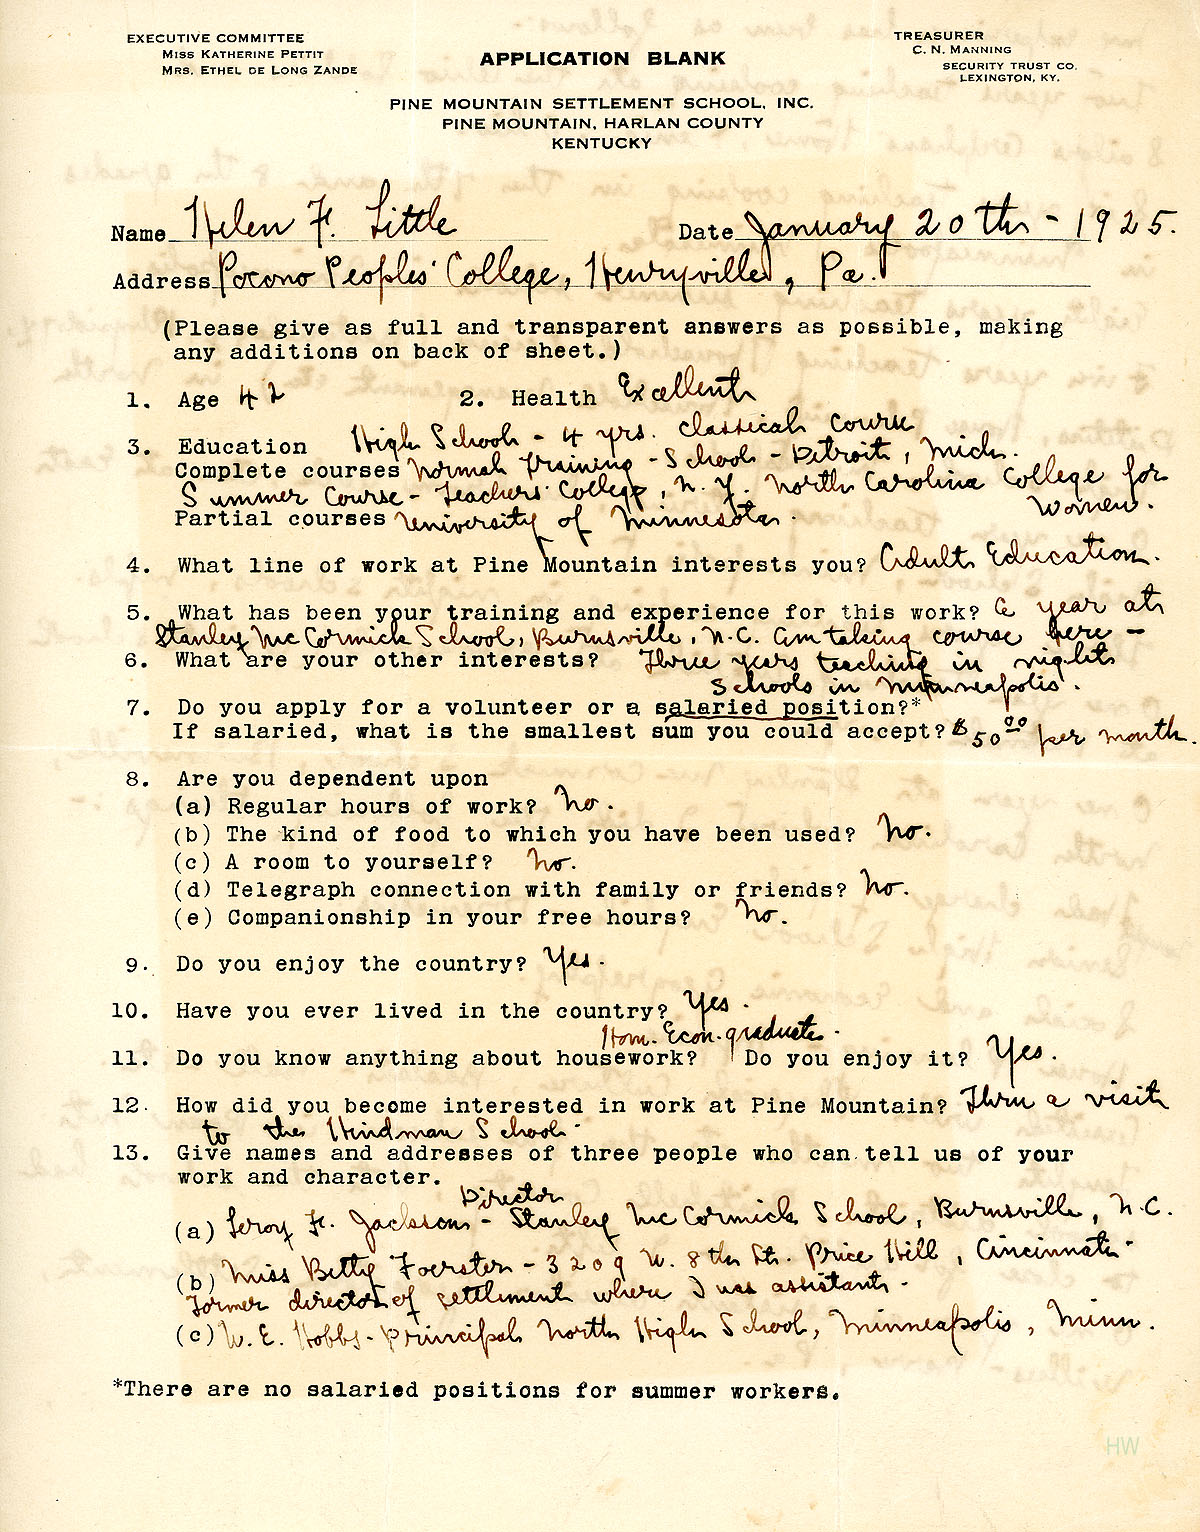 EXECUTIVE COMMITTEE
MISS KATHERINE PETTIT
MRS. ETHEL DE LONG ZANDE
TREASURER
C. N. MANNING
SECURITY TRUST CO.
LEXINGTON, KY.
APPLICATION BLANK
PINE MOUNTAIN SETTLEMENT SCHOOL, INC.
PINE MOUNTAIN, HARLAN COUNTY
KENTUCKY
Name Helen F. Little Date January 20th - 1925.
Address Pocono Peoples' College, Henryville, Pa.
(Please give as full and transparent answers as possible, making
any additions on back of sheet.)
1. Age 42 2. Health Excellent
3. Education High School - 4 yrs. classical course
Complete courses Normal Training - School - Detroit, Mich.
Summer Course - Teachers' College, N. Y. North Carolina College for
Women.
Partial courses University of Minnesota.
4. What line of work at Pine Mountain interests you? Adult Education.
5. What has been your training and experience for this work? A year at
Stanley McCormick School, Burnsville, N.C. Am taking course here -
6. What are your other interests? Three years teaching in night
schools in Minneapolis.
7. Do you apply for a volunteer or a salaried position?*
If salaried, what is the smallest sum you could accept? $50.00 per month.
8. Are you dependent upon
(a) Regular hours of work? No.
(b) The kind of food to which you have been used? No.
(c) A room to yourself? No.
(d) Telegraph connection with family or friends? No.
(e) Companionship in your free hours? No.
9. Do you enjoy the country? Yes.
10. Have you ever lived in the country? Yes.
Hom. Econ. graduate.
11. Do you know anything about housework? Do you enjoy it? Yes.
12. How did you become interested in work at Pine Mountain? Thru a visit
to the Hindman School.
13. Give names and addresses of three people who can tell us of your
work and character.
Director
(a) Leroy F. Jackson - Stanley McCormick School, Burnsville, N.C.
(b) Miss Betty Foerster - 3209 W. 8th St. Price Hill, Cincinnati.
Former director of settlement where I was assistant.
(c) W. E. Hobbs - principal North High School, Minneapolis, Minn.
*There are no salaried positions for summer workers.
HW